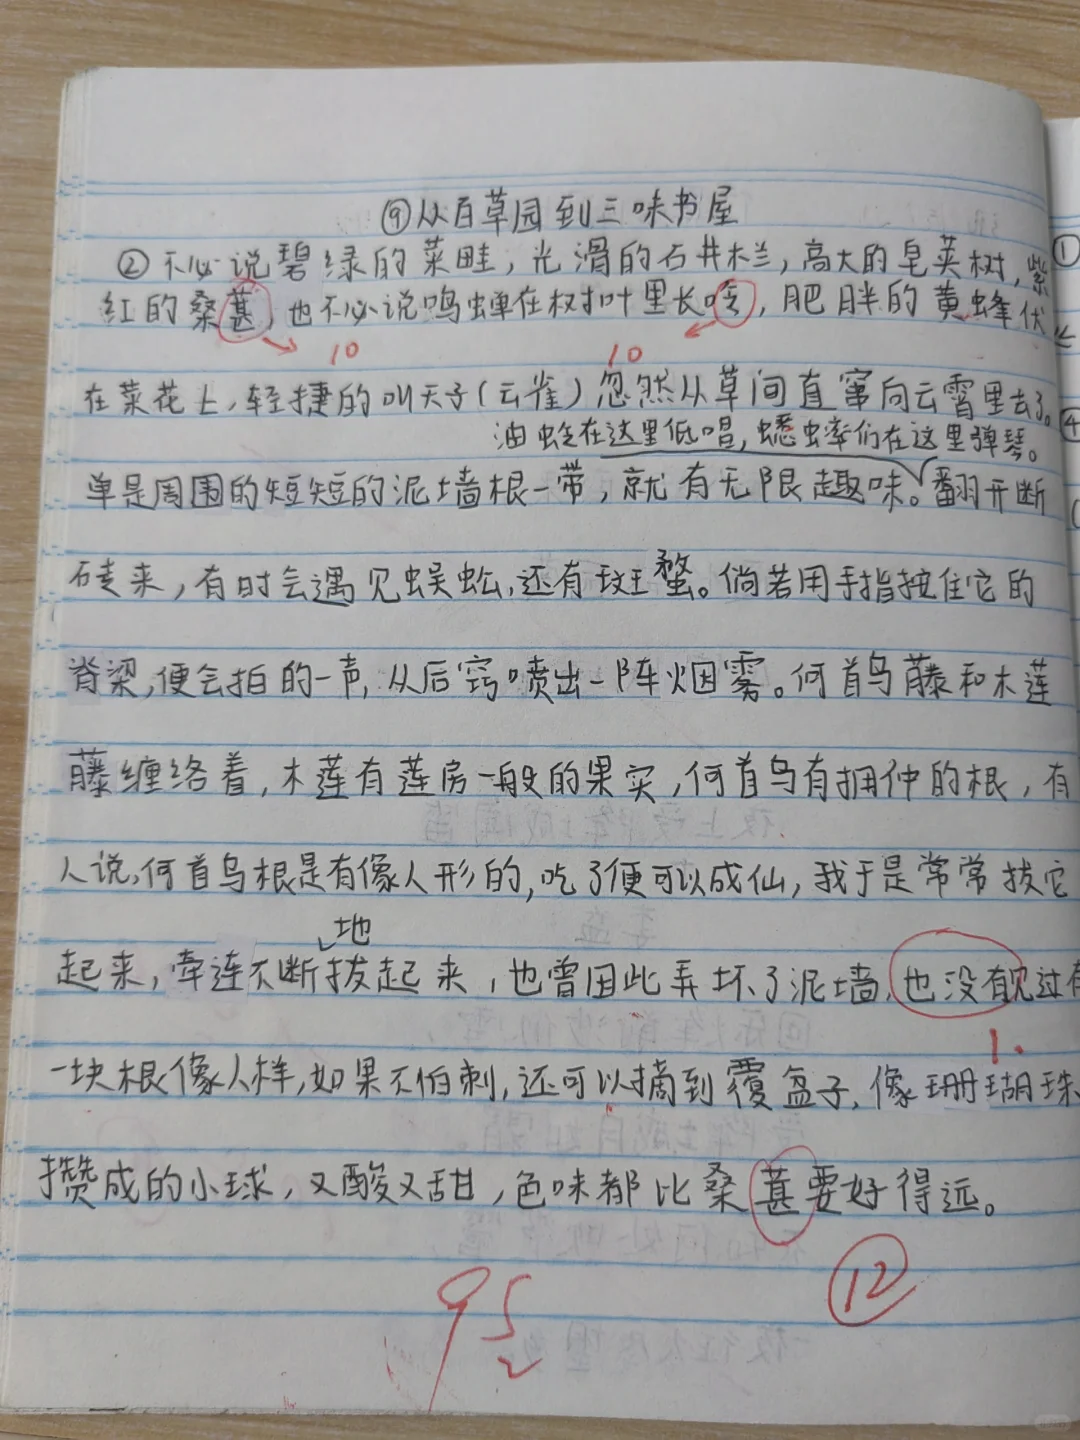 ⑨从百草园到三味书屋
②不必说碧绿的菜畦，光滑的石井栏，高大的皂荚树，紫
红的桑葚，也不必说鸣蝉在树叶里长吟，肥胖的黄蜂伏
10 10
在菜花上，轻捷的叫天子（云雀）忽然从草间直窜向云霄里去了。
油蛉在这里低唱，蟋蟀们在这里弹琴。
单是周围的短短的泥墙根一带，就有无限趣味。翻开断
砖来，有时会遇见蜈蚣，还有斑蝥。倘若用手指按住它的
脊梁，便会拍的一声，从后窍喷出一阵烟雾。何首乌藤和木莲
藤缠络着，木莲有莲房一般的果实，何首乌有拥肿的根，有
人说，何首乌根是有像人形的，吃了便可以成仙，我于是常常拔它
地
起来，牵连不断拔起来，也曾因此弄坏了泥墙，也没有见过有
1.
一块根像人样，如果不怕刺，还可以摘到覆盆子，像珊瑚珠
攒成的小球，又酸又甜，色味都比桑葚要好得远。
⑫
95
①
④